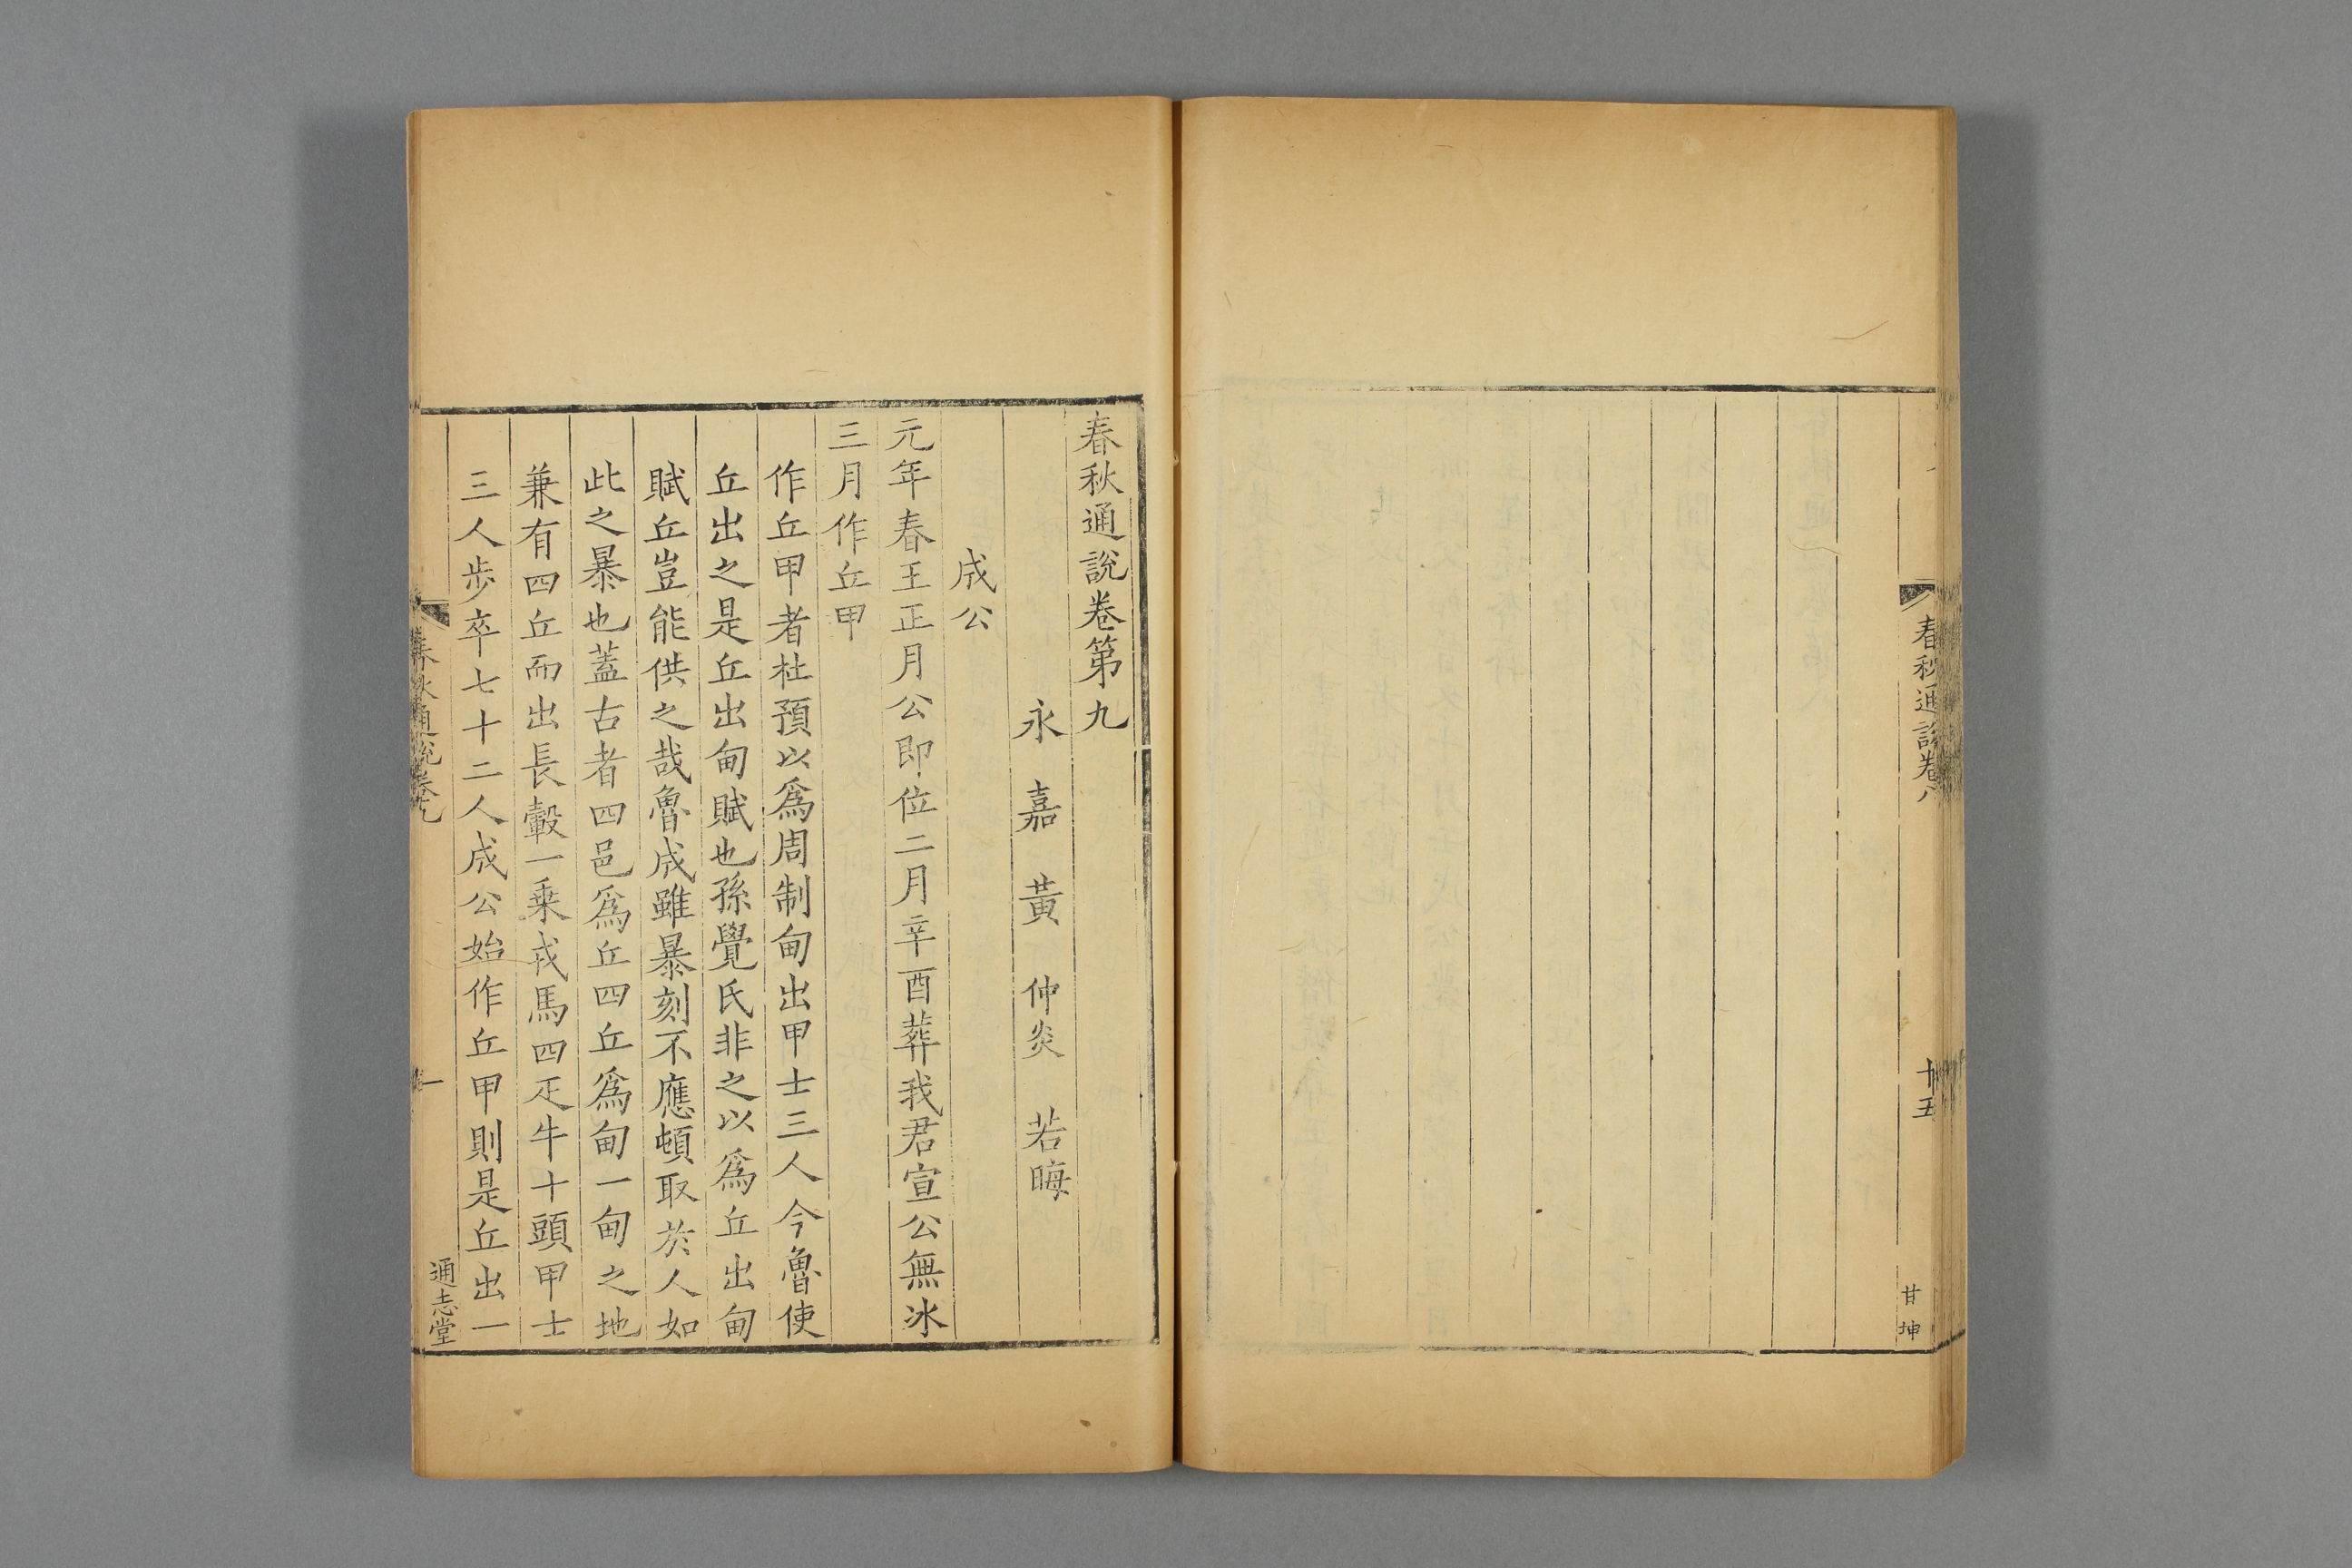 春秋通說卷八
十五
甘坤
春秋通說卷第九
永嘉黃仲炎若晦
成公
元年春王正月公即位二月辛酉葬我君宣公無冰
三月作丘甲
作丘甲者杜預以爲周制甸出甲士三人今魯使
丘出之是丘出甸賦也孫覺氏非之以爲丘出甸
賦丘豈能供之哉魯成雖暴刻不應頓取於人如
此之暴也蓋古者四邑爲丘四丘爲甸一甸之地
兼有四丘而出長轂一乗戎馬四疋牛十頭甲士
三人步卒七十二人成公始作丘甲則是丘出一
春秋通說卷九
一
通志堂